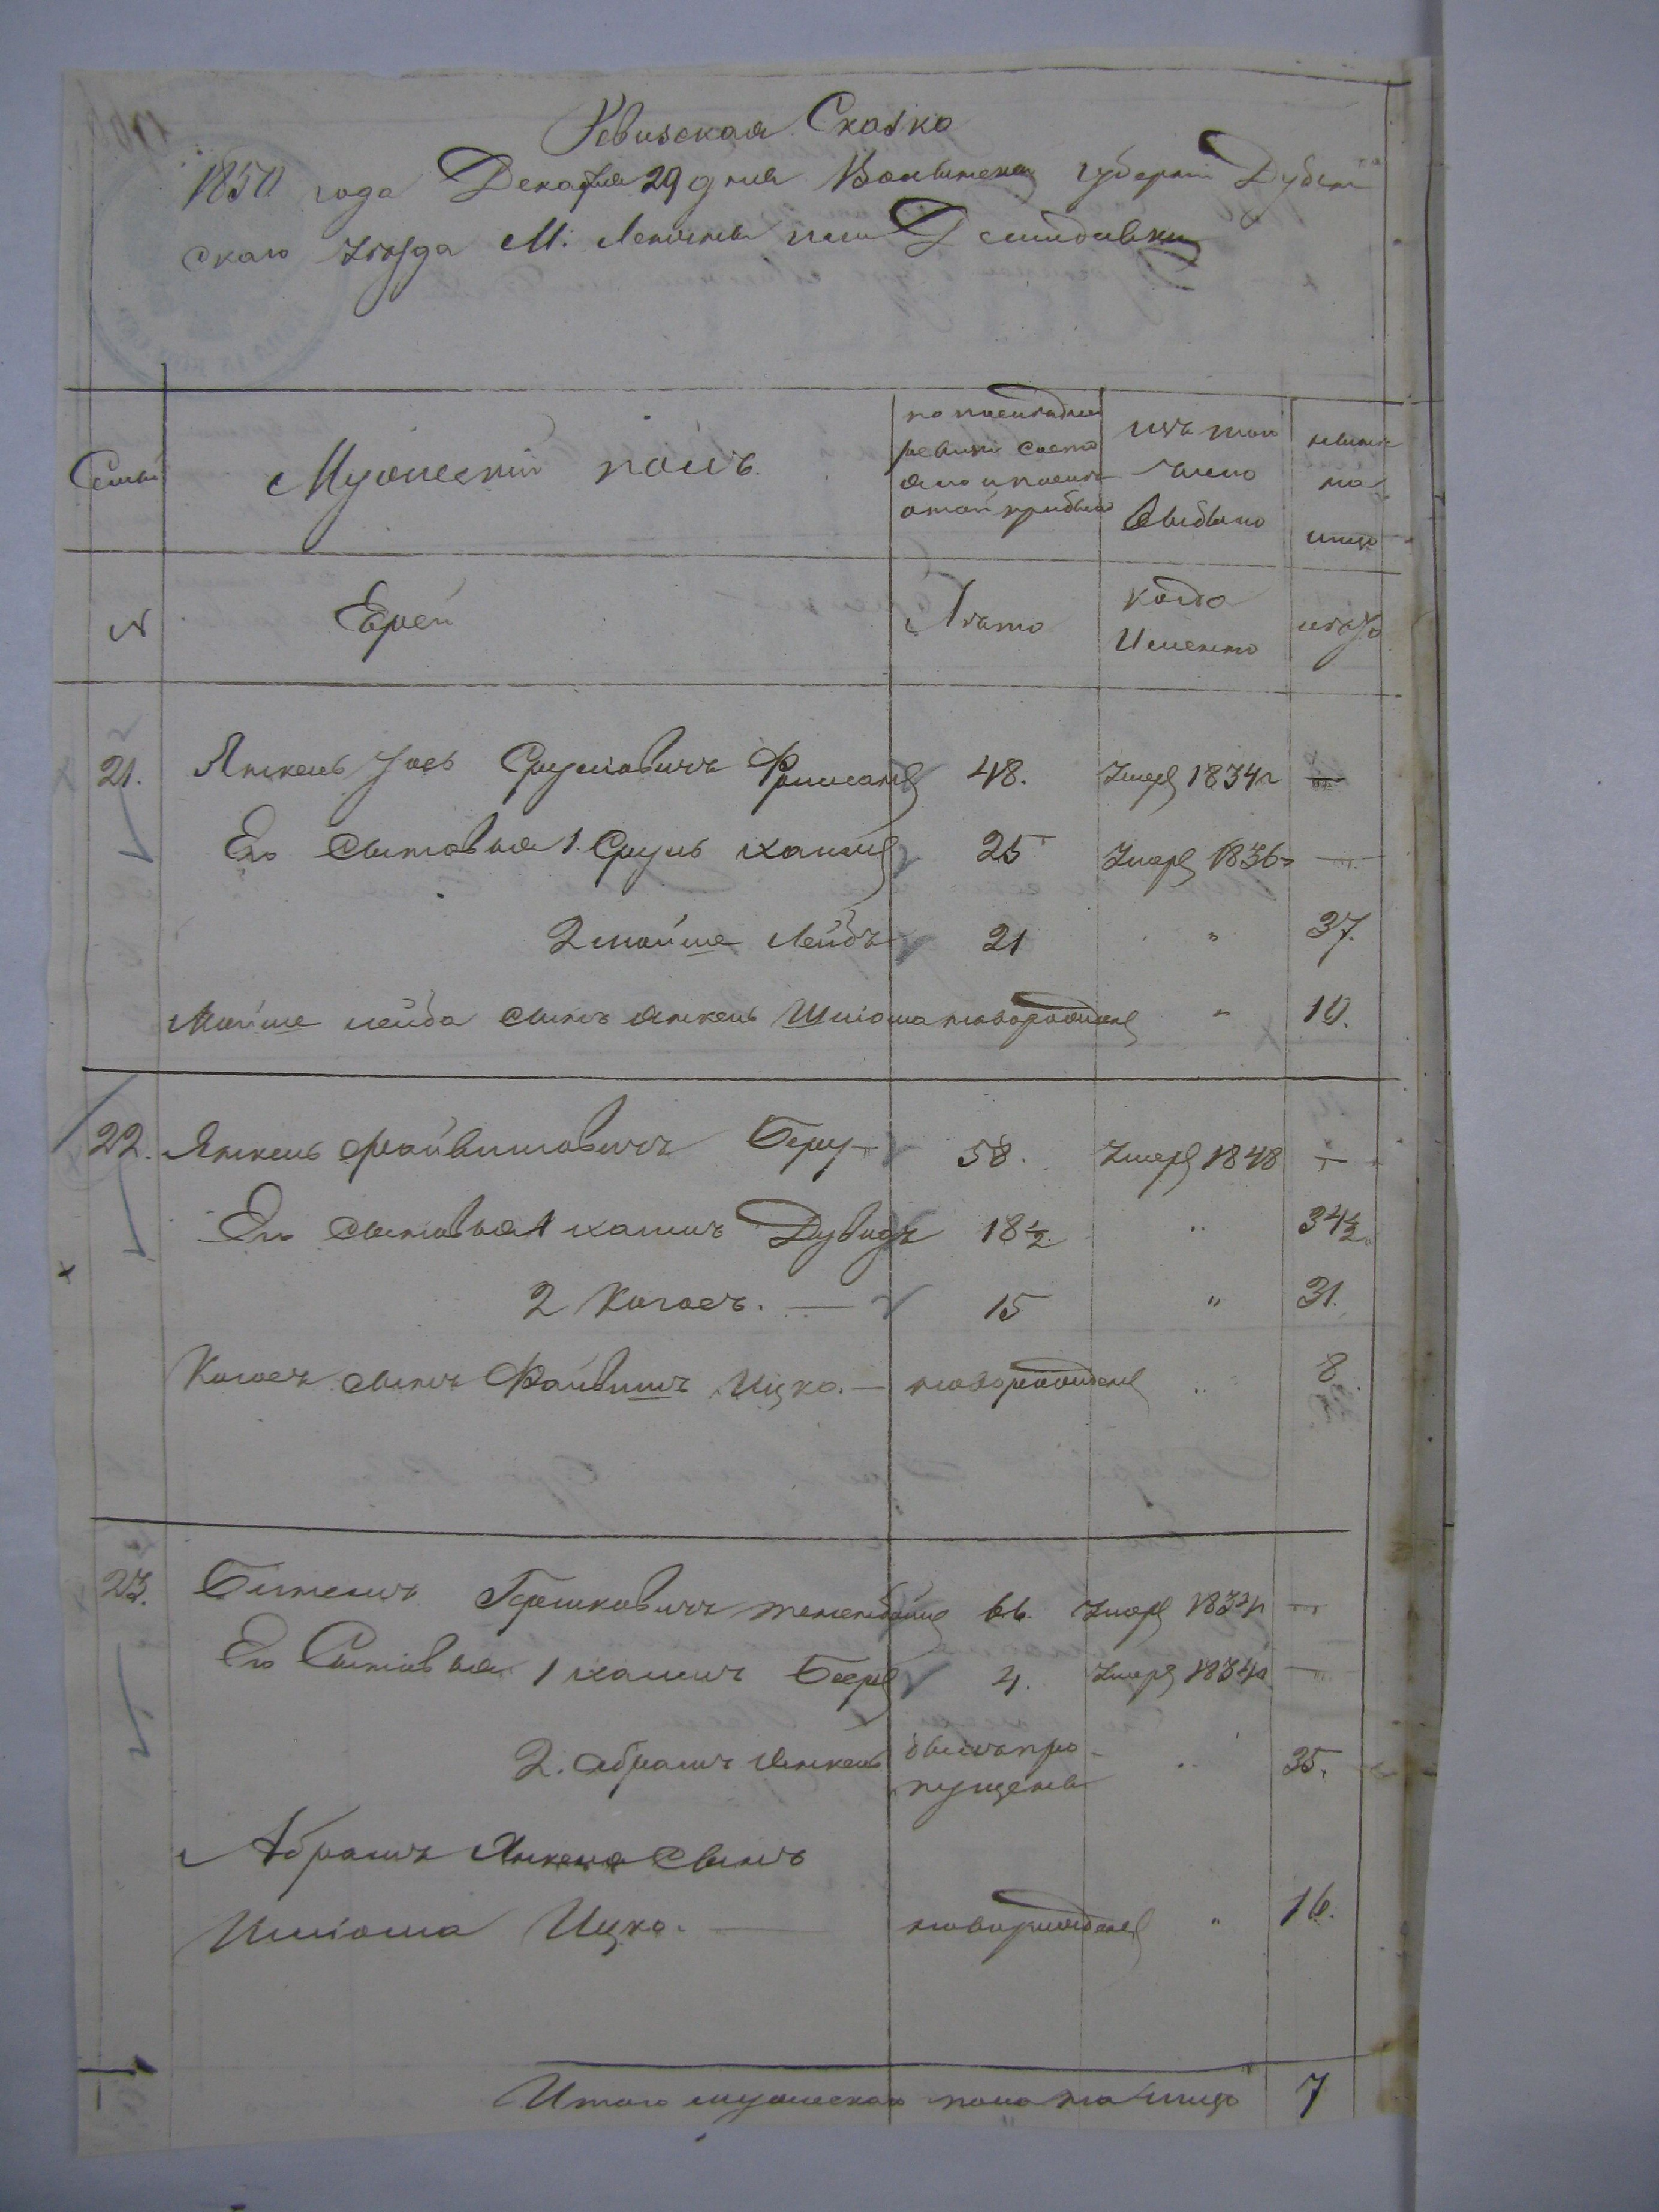 Ревизская Сказка
1850 года Декабря 29 дня Волынской губернии Дубен
скаго уезда М. Демидовки
Семьи
Мужеский полъ
по последней
ревизии состо
яло и после
оной прибыло
изъ того
числа
выбыло
ныне
на
лицо
№
Евреи
Лета
когда
Именно
лета
21. Янкель Іось Срулевичъ 48. Умеръ 1834 г —
Его сыновья 1. Сруль Хаимъ 25 Умеръ 1836 г —
2 Мойше Лейбъ 21 " 37.
Мойше Лейба сынъ Янкель Шліома новорожденъ " 10.
22. Янкель Файвишовичъ 58. Умеръ 1848 —
Его сыновья 1 Хаимъ Дувидъ 18½ " 34½
2 Келосъ. — 15 " 31.
сынъ Файвишъ Ицко. — новорожденъ " 8.
23. Гершковичъ 66. Умеръ 1834 г —
Его Сыновья 1 Хаимъ Беръ 4. Умеръ 1834 г —
2. Абрамъ Янкель былъ про-
пущенъ " 35.
Абрамъ Янкеля сынъ
Шліома Ицко. — новорожденъ " 16.
Итого мужеска пола на лицо 7